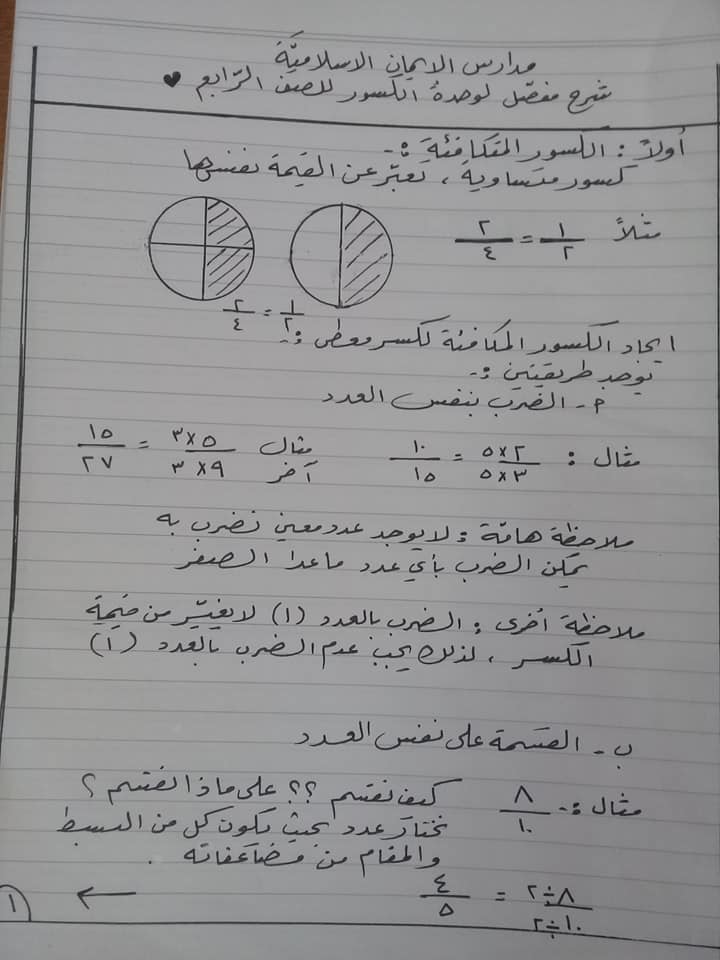 مدارس الايمان الاسلاميّة
شرح مفصّل لوحدة الكسور للصف الرّابع ♥
أولاً : الكسور المتكافئة :-
كسور متساوية ، تعبّر عن القيمة نفسها
مثلاً ١/٢ = ٢/٤
١/٢ = ٢/٤
ايجاد الكسور المكافئة لكسر معطى :-
يوجد طريقتين :-
أ - الضرب بنفس العدد
مثال : ٥×٢/٥×٣ = ١٠/١٥ مثال آخر ٣×٥/٣×٩ = ١٥/٢٧
ملاحظة هامّة : لا يوجد عدد معين نضرب به
يمكن الضرب بأي عدد ما عدا الصفر
ملاحظة أخرى : الضرب بالعدد (١) لا يغيّر من قيمة
الكسر ، لذلك يجب عدم الضرب بالعدد (١)
ب - القسمة على نفس العدد
مثال :- ٨/١٠ كيف نقسم ؟؟ على ماذا نقسم ؟
نختار عدد بحيث يكون كل من البسط
والمقام من مضاعفاته .
٨÷٢/١٠÷٢ = ٤/٥
←
١